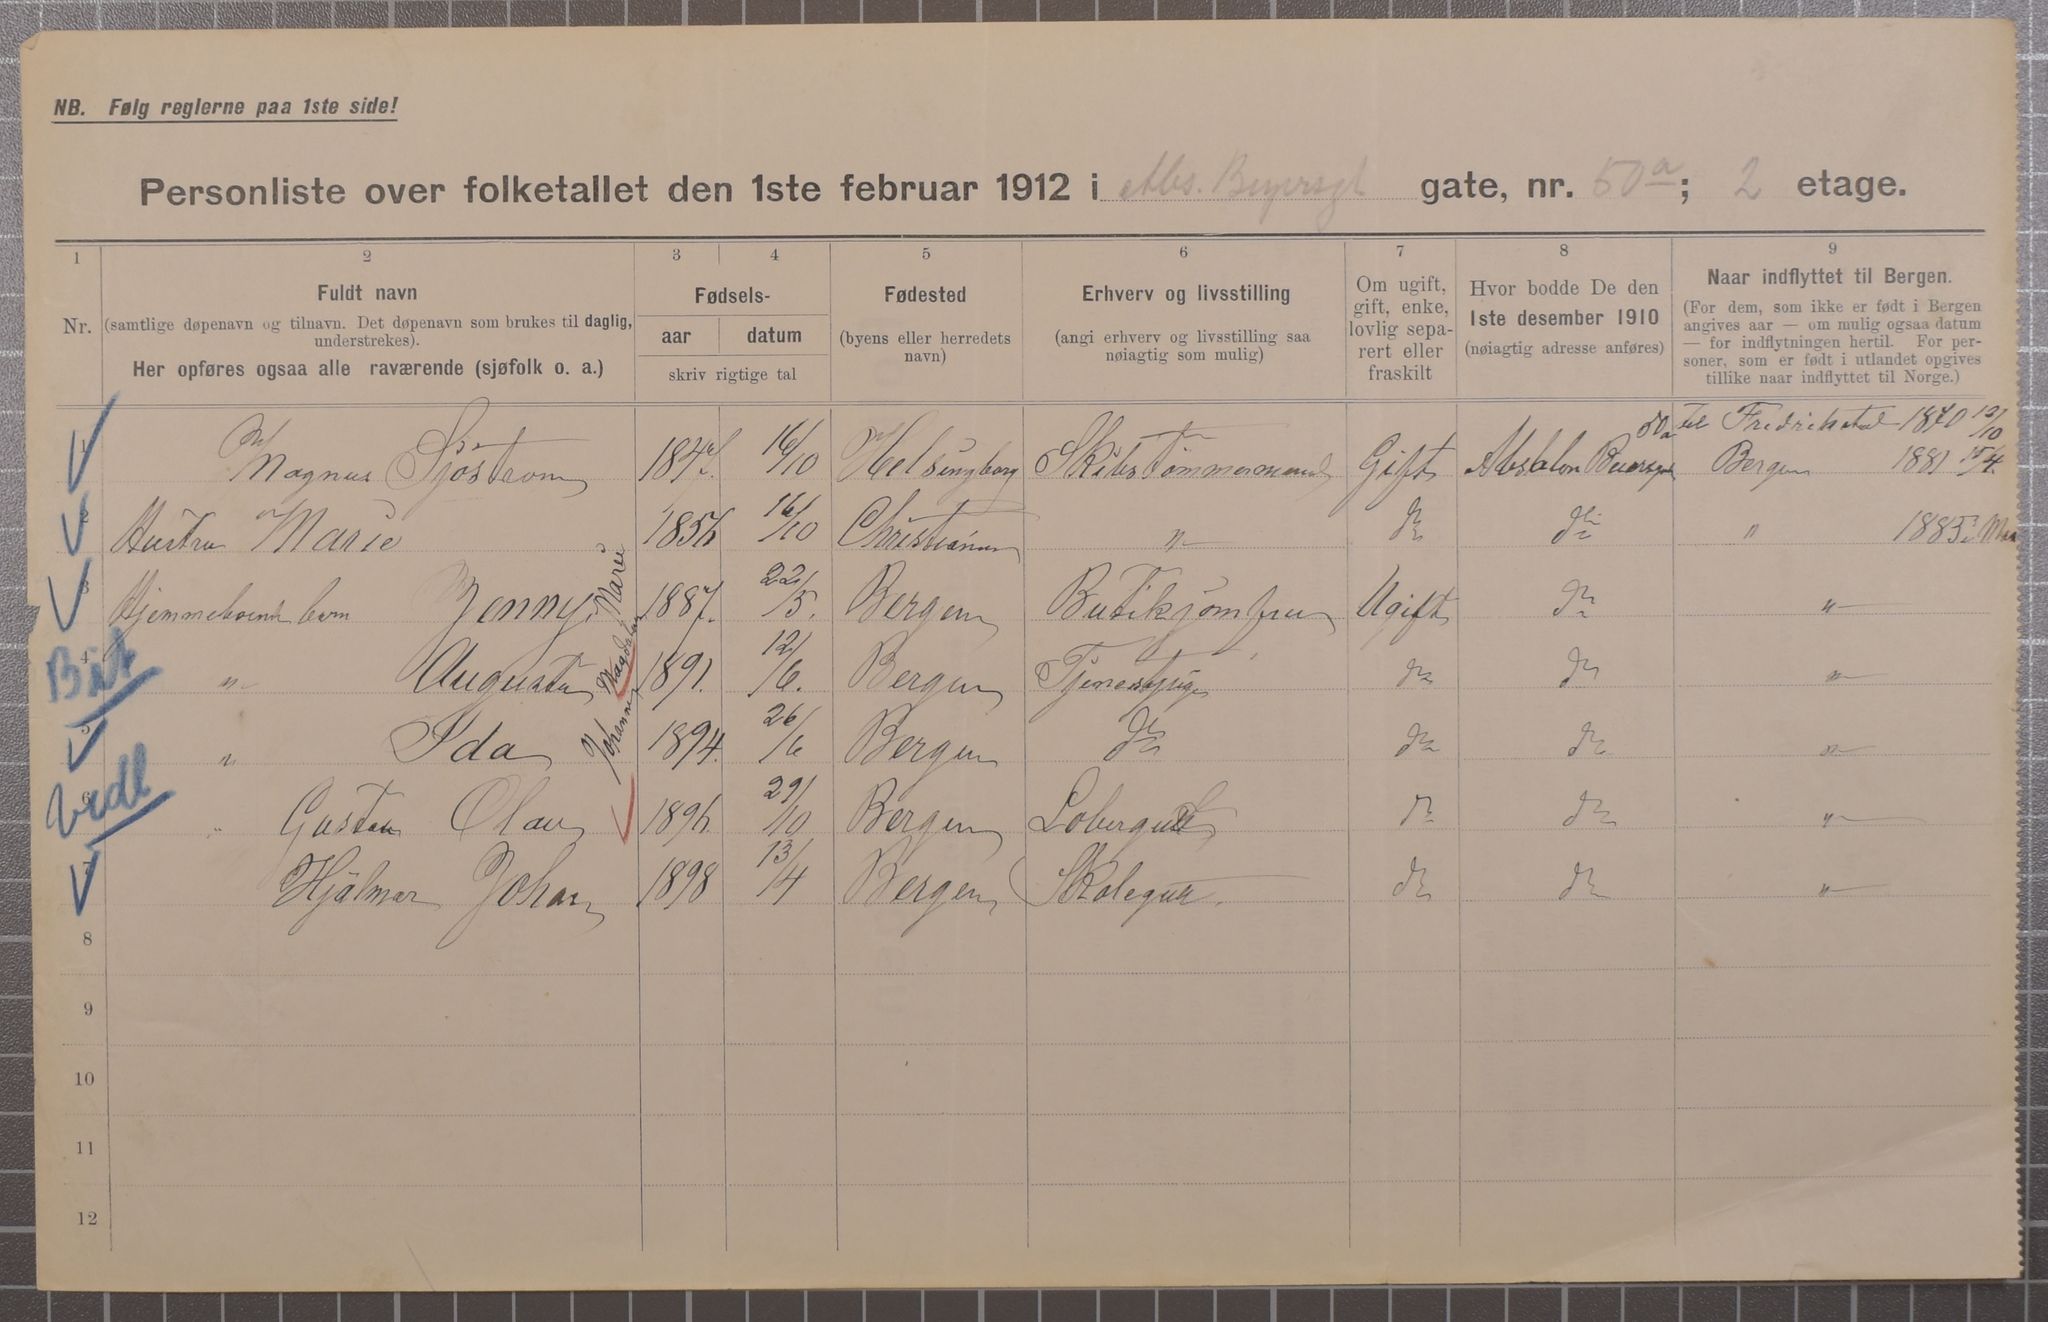 NB. Følg reglerne paa 1ste side!
Personliste over folketallet den 1ste februar 1912 i Abs. Beyersgt gate, nr. 50a; 2 etage.
1 2 3 4 5 6 7 8 9
Nr.
Fuldt navn
(samtlige døpenavn og tilnavn. Det døpenavn som brukes til daglig, understrekes).
Her opføres ogsaa alle raværende (sjøfolk o. a.)
Fødsels-
aar datum
skriv rigtige tal
Fødested
(byens eller herredets navn)
Erhverv og livsstilling
(angi erhverv og livsstilling saa nøiagtig som mulig)
Om ugift, gift, enke, lovlig sepa-rert eller fraskilt
Hvor bodde De den 1ste desember 1910
(nøiagtig adresse anføres)
Naar indflyttet til Bergen.
(For dem, som ikke er født i Bergen angives aar — om mulig ogsaa datum — for indflytningen hertil. For per-soner, som er født i utlandet opgives tillike naar indflyttet til Norge.)
1 Magnus Sjöstrom 1847. 16/10 Helsingborg Skibstömmermand Gift Absalon Beiersgt 50a til Fredrikstad 1870 12/10
Bergen 1881 15/4
2 Hustru Marie 1856 16/10 Christiania " do do " 1885 i Mai
3 Hjemmeboende barn Jenny Marie 1887. 22/5. Bergen Butikjomfru Ugift do "
4 " Augusta Magdalen 1891. 12/6. Bergen Tjenestpige do do "
5 " Ida Johanne 1894. 26/6 Bergen do do do "
6 " Gustav Olav 1896 29/10 Bergen Lobergut do do "
7 Hjälmar Johan 1898 13/4 Bergen Skolegut. do do "
8
9
10
11
12